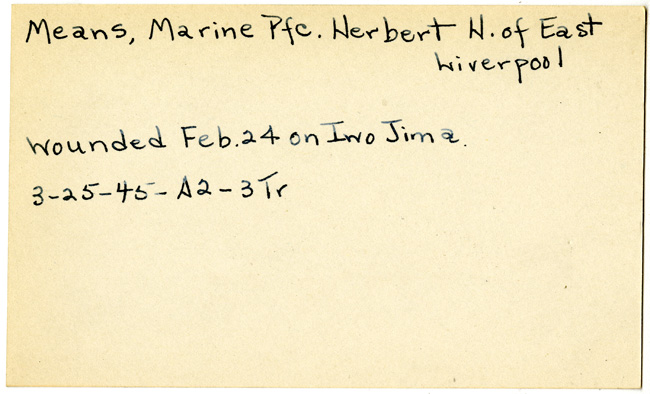 Means, Marine Pfc. Herbert H. of East
Liverpool
Wounded Feb. 24 on Iwo Jima.
3-25-45- A2-3 Tr